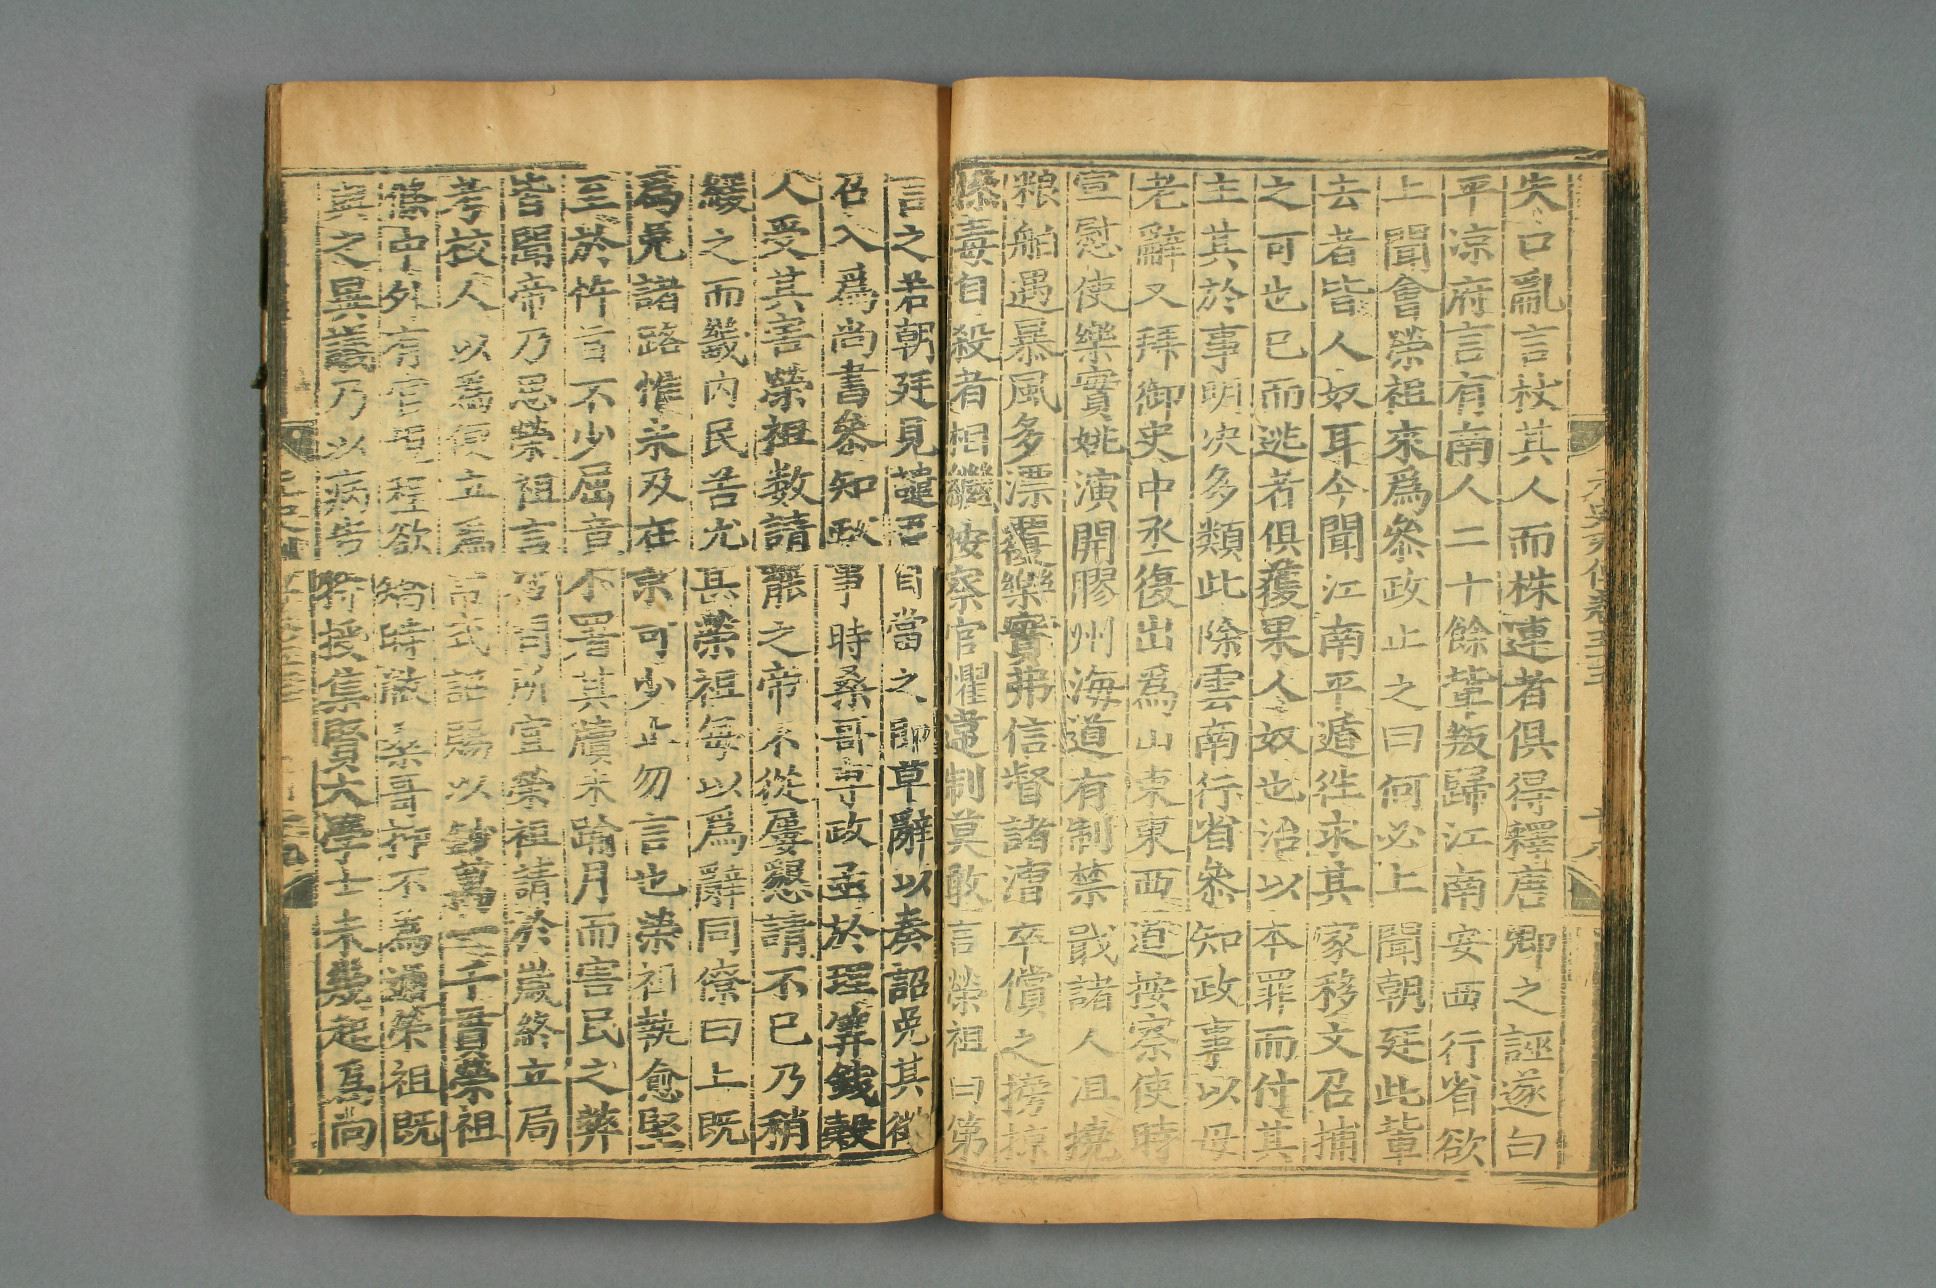 失口亂言杖其人而株連者俱得釋唐卿之誣遂白
平涼府言有南人二十餘輩叛歸江南安西行省欲
上聞會榮祖來爲參政止之曰何必上聞朝廷此輩
去者皆人奴耳今聞江南平遁往求其家移文召捕
之可也已而逃者俱獲果人奴也治以本罪而付其
主其於事明決多類此除雲南行省參知政事以母
老辭又拜御史中丞復出爲山東東西道按察使時
宣慰使樂實姚演開膠州海道有制禁戢諸人沮撓
粮舶遇暴風多漂覆樂實弗信督諸漕卒償之搒掠
慘毒自殺者相繼按察官懼違制莫敢言榮祖曰第
言之若朝廷見譴吾自當之即草辭以奏詔免其徵
召入爲尚書參知政事時桑哥專政亟於理筭錢穀
人受其害榮祖數請罷之帝不從屢懇請不已乃稍
緩之而畿內民苦尤甚榮祖每以爲辭同僚曰上既
爲免諸路惟未及在京可少止勿言也榮祖執愈堅
至於忤旨不少屈竟不署其牘未踰月而害民之弊
皆聞帝乃思榮祖言 所宜榮祖請於歲終立局
考校人以爲便立爲常式詔賜以鈔萬一千貫榮祖
條中外有官 程欲 時 桑哥 不爲通榮祖既
與之異議乃以病告 授集賢大學士未幾起爲尚
元史列傳卷五十五 十八